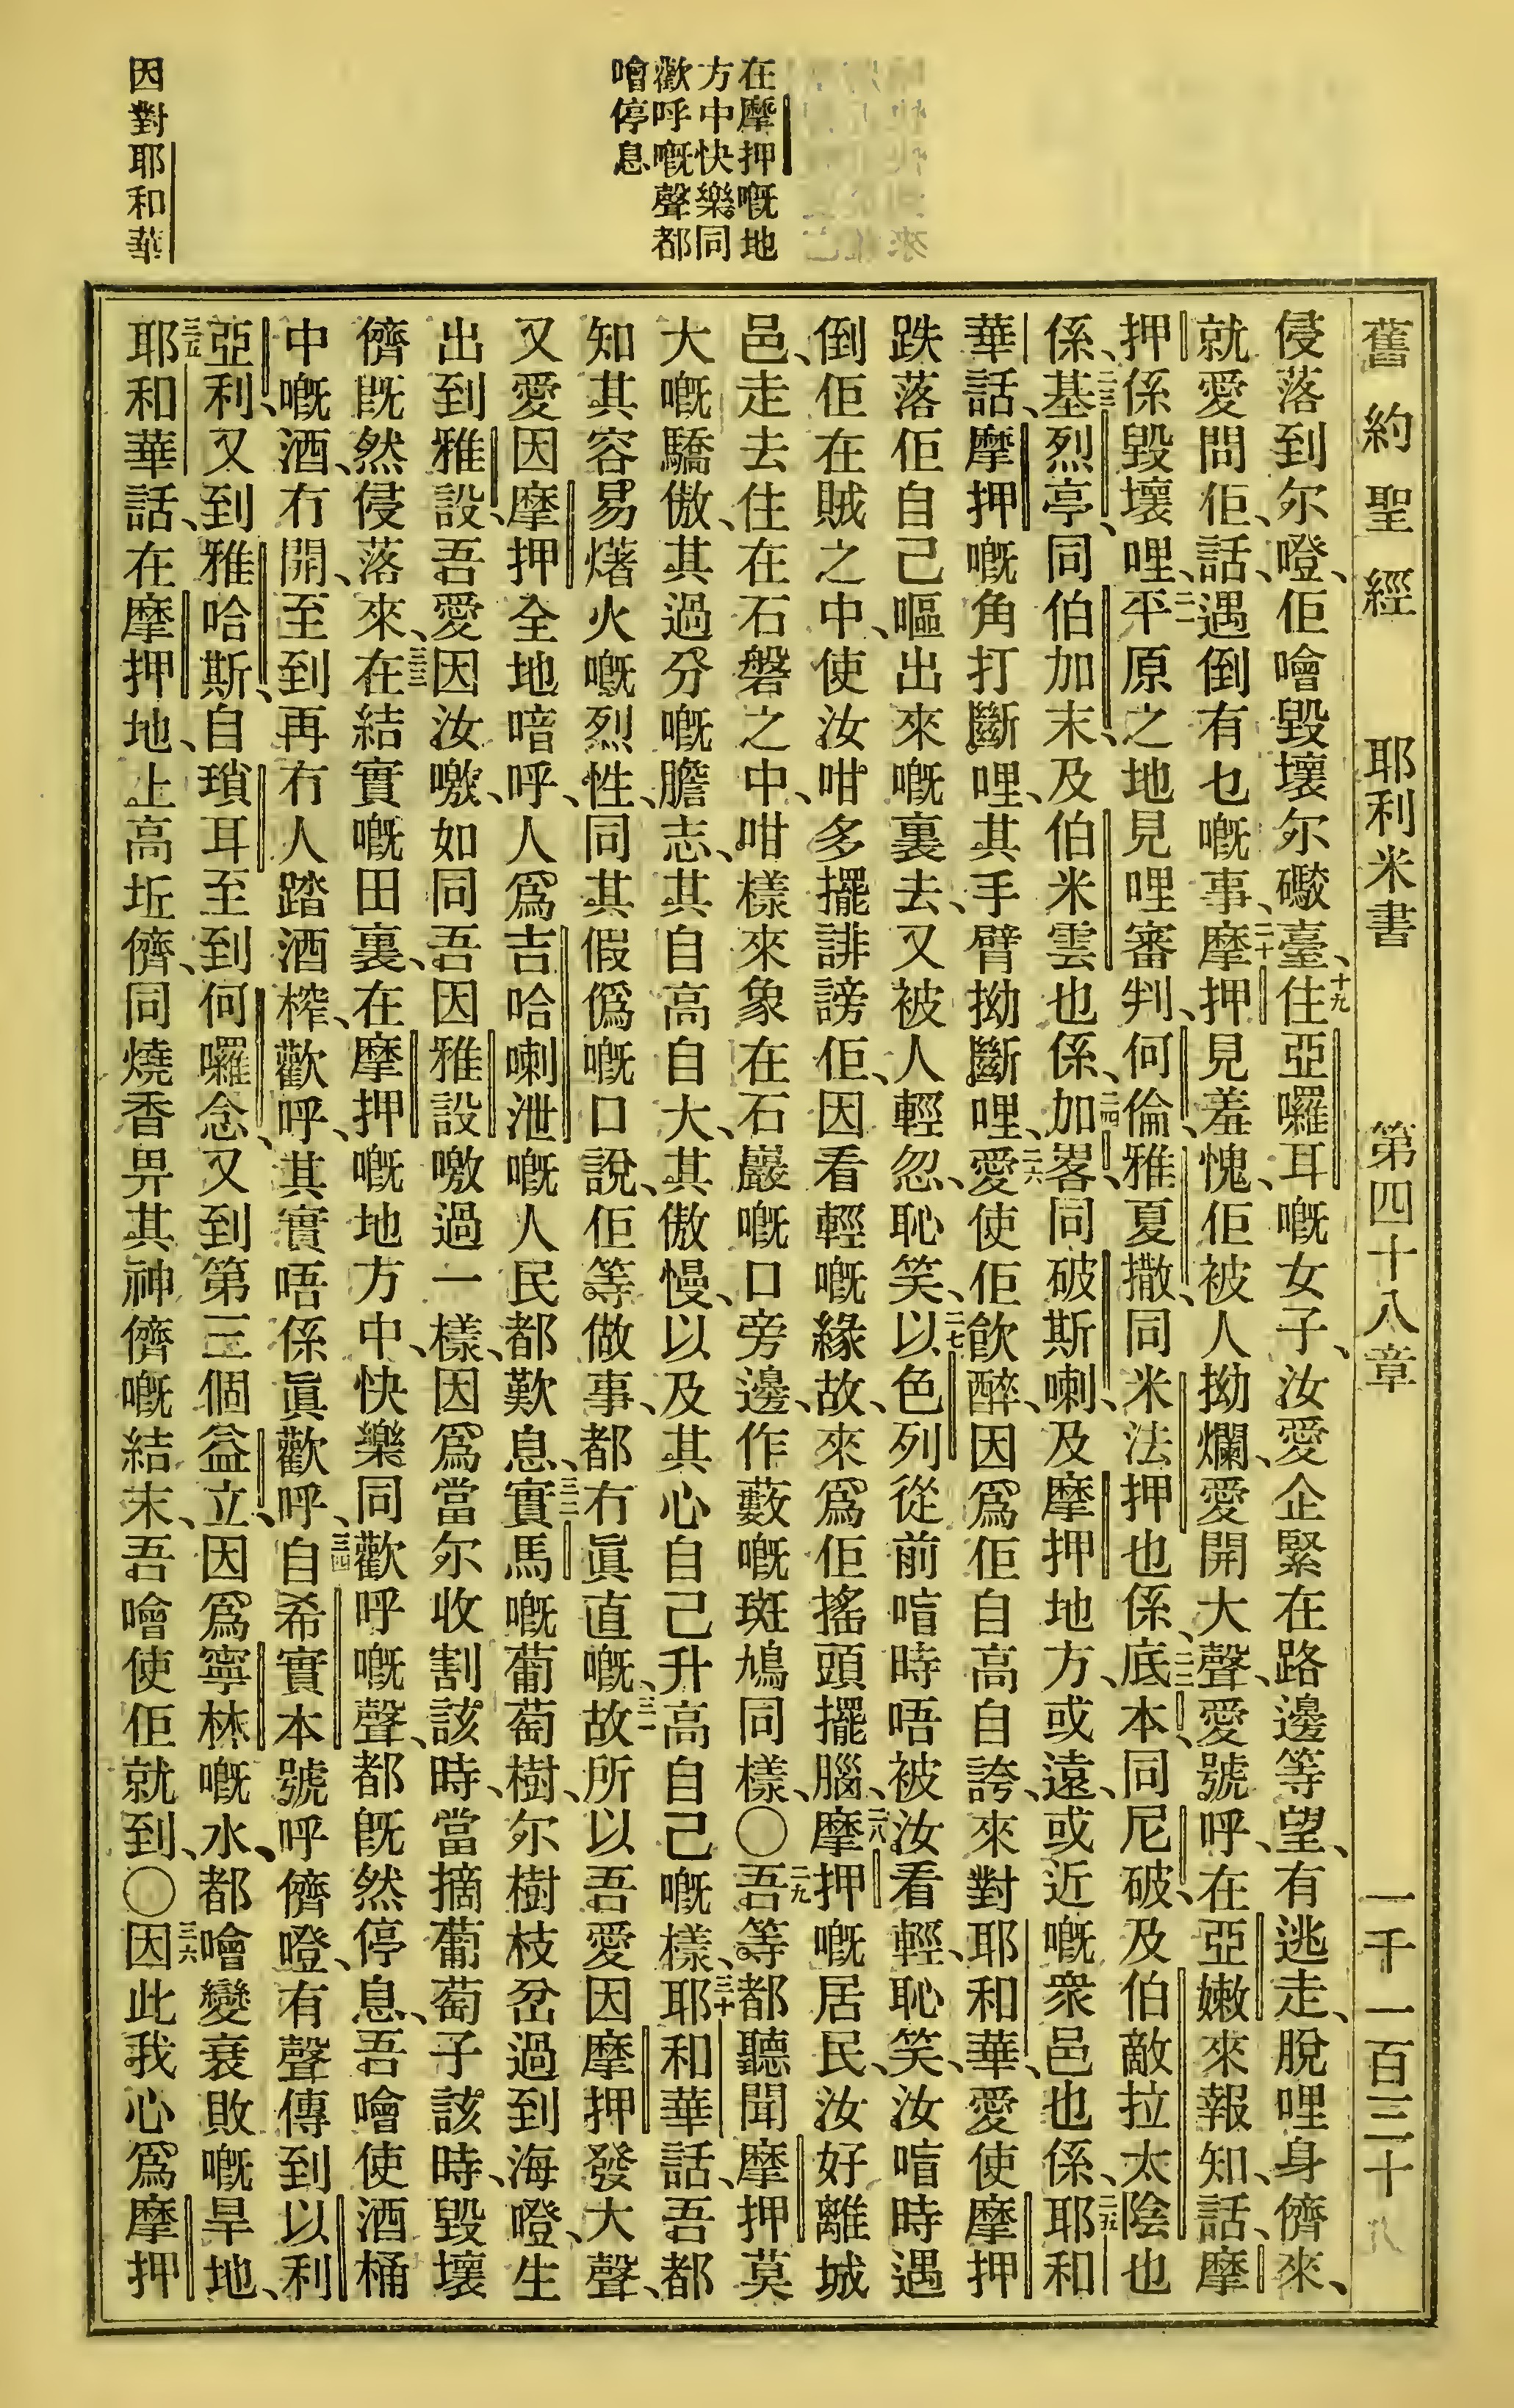 舊約聖經 耶利米書 第四十八章 一千一百三十
侵落到尔噔、佢噲毀壞尔礮臺、十九住亞囉耳嘅女子、汝愛企緊在路邊等望、有逃走、脫哩身儕來、
就愛問佢、話、遇倒有乜嘅事、二十摩押見羞愧、佢被人拗爛、愛開大聲、愛號呼、在亞嫩來報知、話、摩
押係毀壞哩、二一平原之地見哩審判、何倫、雅夏撒、同米法押也係、二二底本、同尼破、及伯敵拉太陰也
係、二三基烈亭、同伯加末、及伯米雲也係、二四加畧、同破斯喇、及摩押地方、或遠、或近嘅衆邑也係、二五耶和
華話、摩押嘅角打斷哩、其手臂拗斷哩、二六愛使佢飲醉、因爲佢自高自誇、來對耶和華、愛使摩押
跌落佢自己嘔出來嘅裏去、又被人輕忽、恥笑、二七以色列從前㖔時唔被汝看輕、恥笑、汝㖔時遇
倒佢在賊之中、使汝咁多擺誹謗佢、因看輕嘅緣故、來爲佢搖頭擺腦、二八摩押嘅居民、汝好離城
邑、走去住在石磐之中、咁樣來象在石巖嘅口旁邊、作藪嘅斑鳩同樣、〇二九吾等都聽聞摩押莫
大嘅驕傲、其過分嘅膽志、其自高自大、其傲慢、以及其心自己升高自己嘅樣、三十耶和華話、吾都
知其容易㷮火嘅烈性、同其假僞嘅口說、佢等做事、都冇眞直嘅、三一故所以吾愛因摩押發大聲、
又愛因摩押全地喑呼、人爲吉哈喇泄嘅人民都歎息、三二實馬嘅葡萄樹、尔樹枝岔過到海噔、生
出到雅設、吾愛因汝噭、如同吾因雅設噭過一樣、因爲當尔收割該時、當摘葡萄子該時、毀壞
儕旣然侵落來、三三在結實嘅田裏、在摩押嘅地方中、快樂同歡呼嘅聲、都旣然停息、吾噲使酒桶
中嘅酒、冇開、至到再冇人踏酒榨、歡呼、其實唔係眞歡呼、三四自希實本號呼儕噔、有聲傳到以利
亞利、又到雅哈斯、自瑣耳至到何囉念、又到第三個益立、因爲寧林嘅水、都噲變衰敗嘅旱地、
三五耶和華話、在摩押地、上高坵儕、同燒香畀其神儕嘅結末、吾噲使佢就到、〇三六因此我心爲摩押
在摩押嘅地
方中快樂同
歡呼嘅聲都
噲停息
因對耶和華